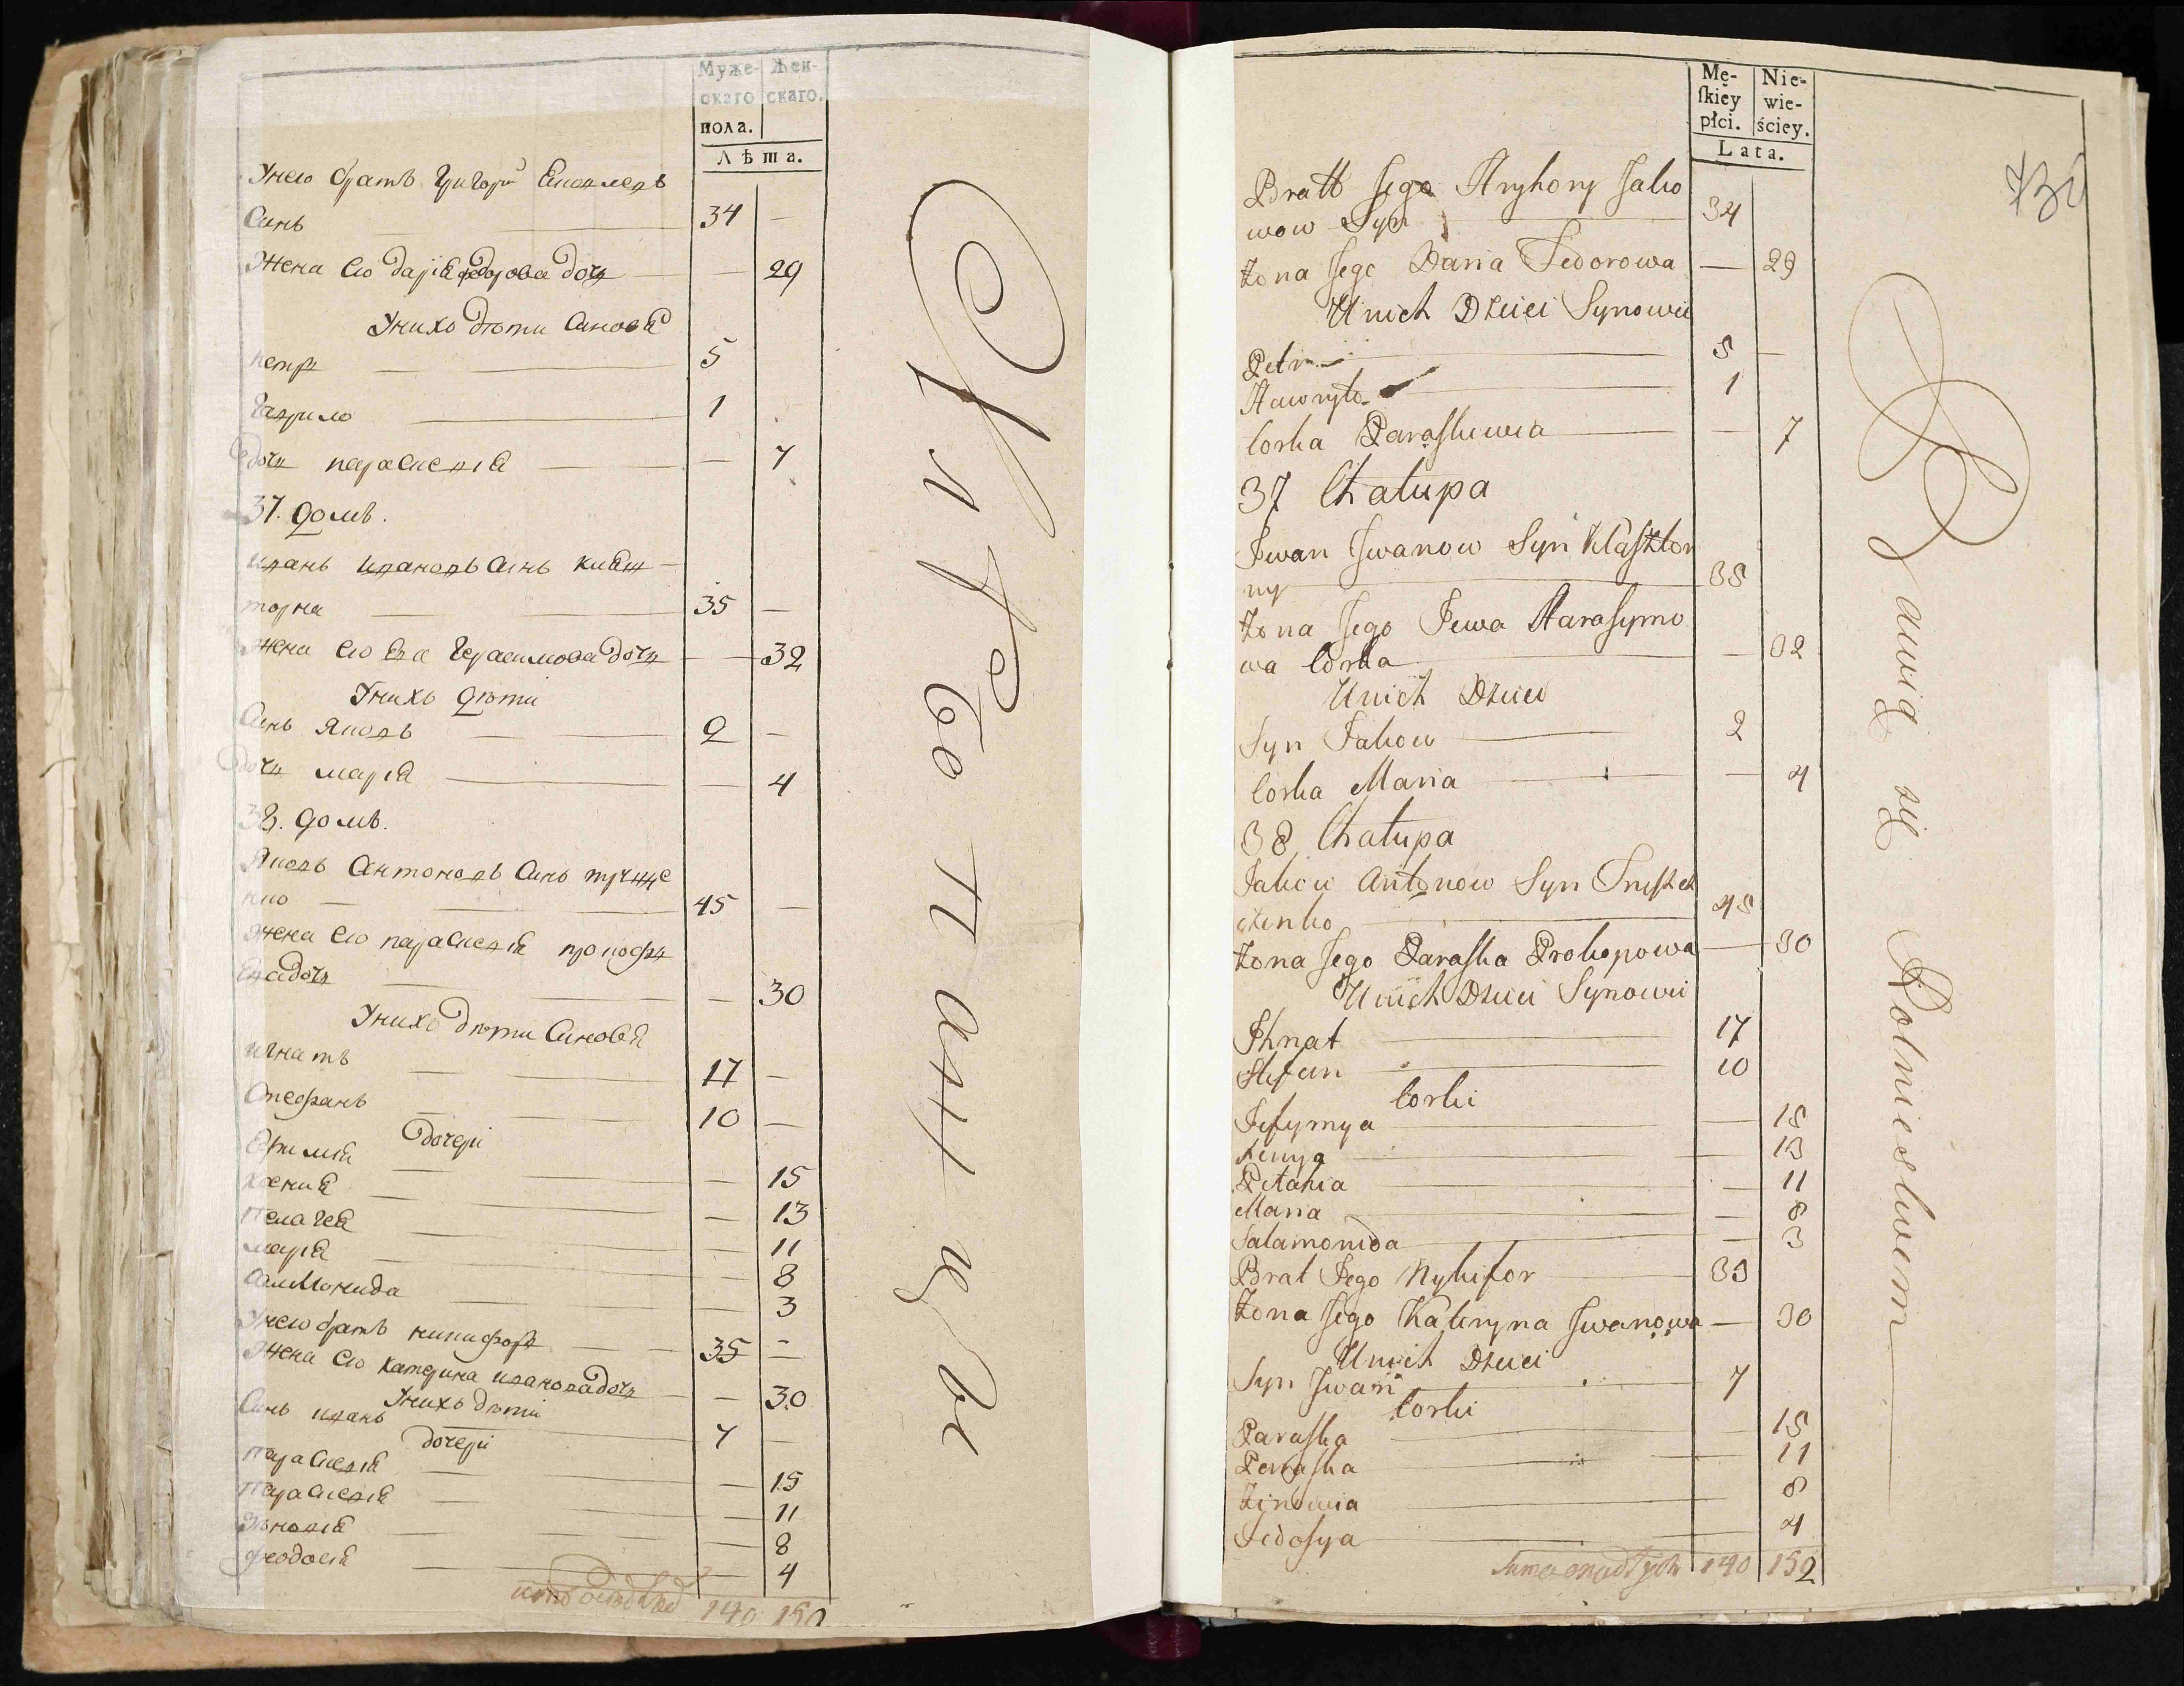 Муже-
скаго
пола.
Жен-
скаго.
Лѣта.
Унего братъ григорій Яковлевъ
Синъ — 34 —
Жена его дарія федорова дочь — — 29
Унихъ дѣти Синовя
петръ — 5
гаврило — 1
дочь параскевія — — 7
37. домъ.
иванъ ивановъ Синъ кляш-
торна — 35 —
Жена его Ева герасимова дочь — — 32
Унихъ дѣти
Синъ Яковъ — 2 —
дочь марія — — 4
38. домъ.
Яковъ Антоновъ Синъ
нко — 45 —
Жена его параскевія прокофь
Ева дочь — — 30
Унихъ дѣти Синовя
игнатъ — 17 —
Стефанъ — 10 —
дочери
Ефимія — — 15
ксения — — 13
пелагея — — 11
марія — — 8
Саламонида — — 3
Унего братъ никифоръ — 35 —
Жена его катерина иванова дочь — — 30
Унихъ дѣти
Синъ иванъ — 7 —
дочери
параскевія — — 15
параскевія — — 11
зѣновія — — 8
феодосія — — 4
140 152
Mę-
ſkiey
płci.
Nie-
wie-
ściey.
Lata.
Bratt Jego Hryhory Jako
wow Syn — 34
Żona Jego Daria Fedorowa — 29
Unich Dzieci Synowie
Petr — 5 —
Hawryło — 1
Corka Paraskiewia — — 7
37 Chałupa
Iwan Iwanow Syn Klasztor
ny — 35
Żona Jego Jewa Harasymo
wa Corka — — 32
Unich Dzieci
Syn Jakow — 2
Corka Maria — — 4
38 Chałupa
Jakow Antonow Syn
czenko — 45
Żona Jego Paraska Prokopowa — 30
Unich Dzieci Synowie
Ihnat — 17
Stefan — 10
Corki
Jefymya — — 15
Xenya — — 13
Pełahia — — 11
Maria — — 8
Sałamonida — — 3
Brat Jego Nykifor — 35
Żona Jego Kateryna Iwanowa — 30
Unich Dzieci
Syn Iwan — 7
Corki
Paraska — 15
Paraska — 11
Zinowia — 8
Fedosya — 4
140 152
Bawią się Rolnictwem